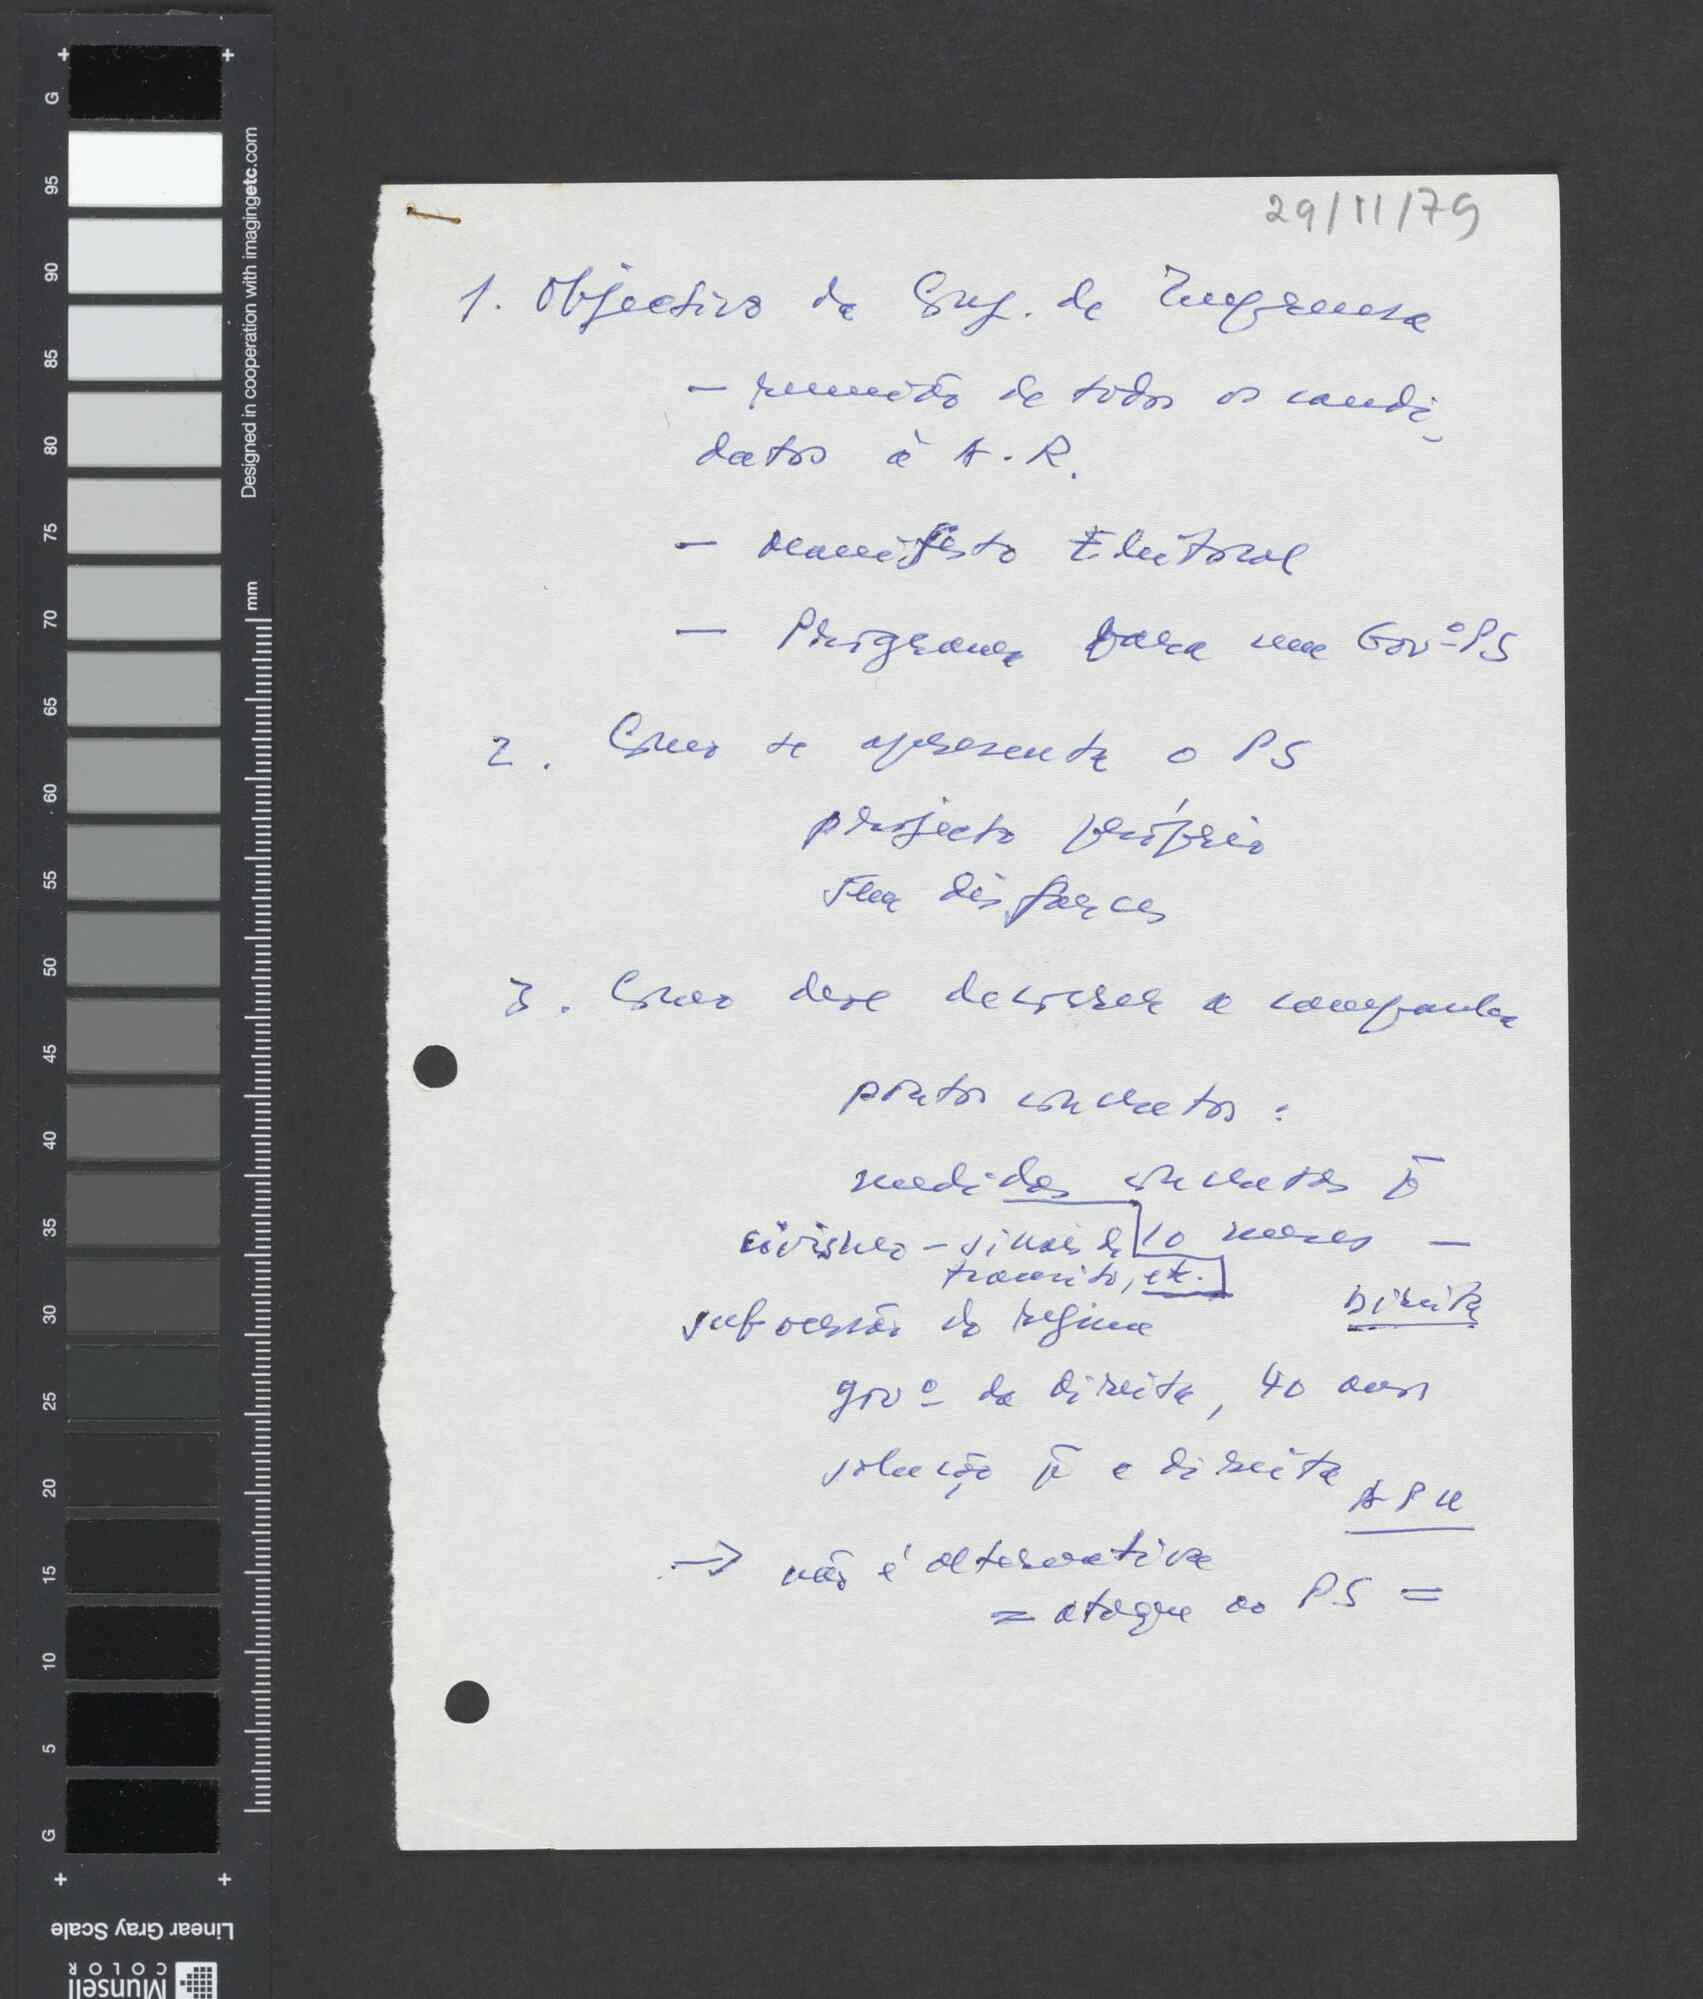 29/11/79
1. Objectivo da Conf. de Imprensa
— reunião de todos os candi-
datos à A.R.
— Manifesto Eleitoral
— Programa para um Govº PS
2. Como se apresenta o PS
projecto próprio
sem disfarces
3. Como deve decorrer a campanha
pontos concretos:
medidas concretas p̄
civismo – sinais de 10 meses —
transito, etc.
Direita
subversão do regime
govº da direita, 40 anos
solução p̄ a direita
APU
→ não é alternativa
= ataque ao PS =
G
95
90
85
80
75
70
65
60
55
50
45
40
35
30
25
20
15
10
5
G
Designed in cooperation with imagingetc.com
mm
Linear Gray Scale
Munsell
COLOR